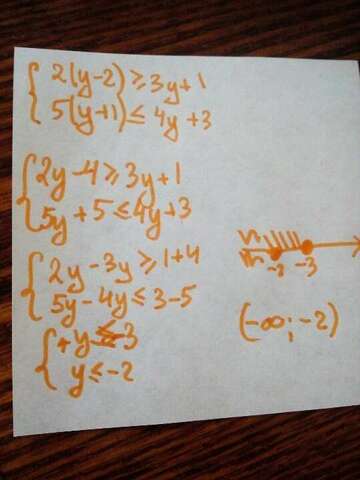 2(y-2) ≥ 3y+1
5(y+1) ≤ 4y+3
2y-4 ≥ 3y+1
5y+5 ≤ 4y+3
2y-3y ≥ 1+4
5y-4y ≤ 3-5
y ≤ -3
y ≤ -2
-2 -3
(-∞; -2)